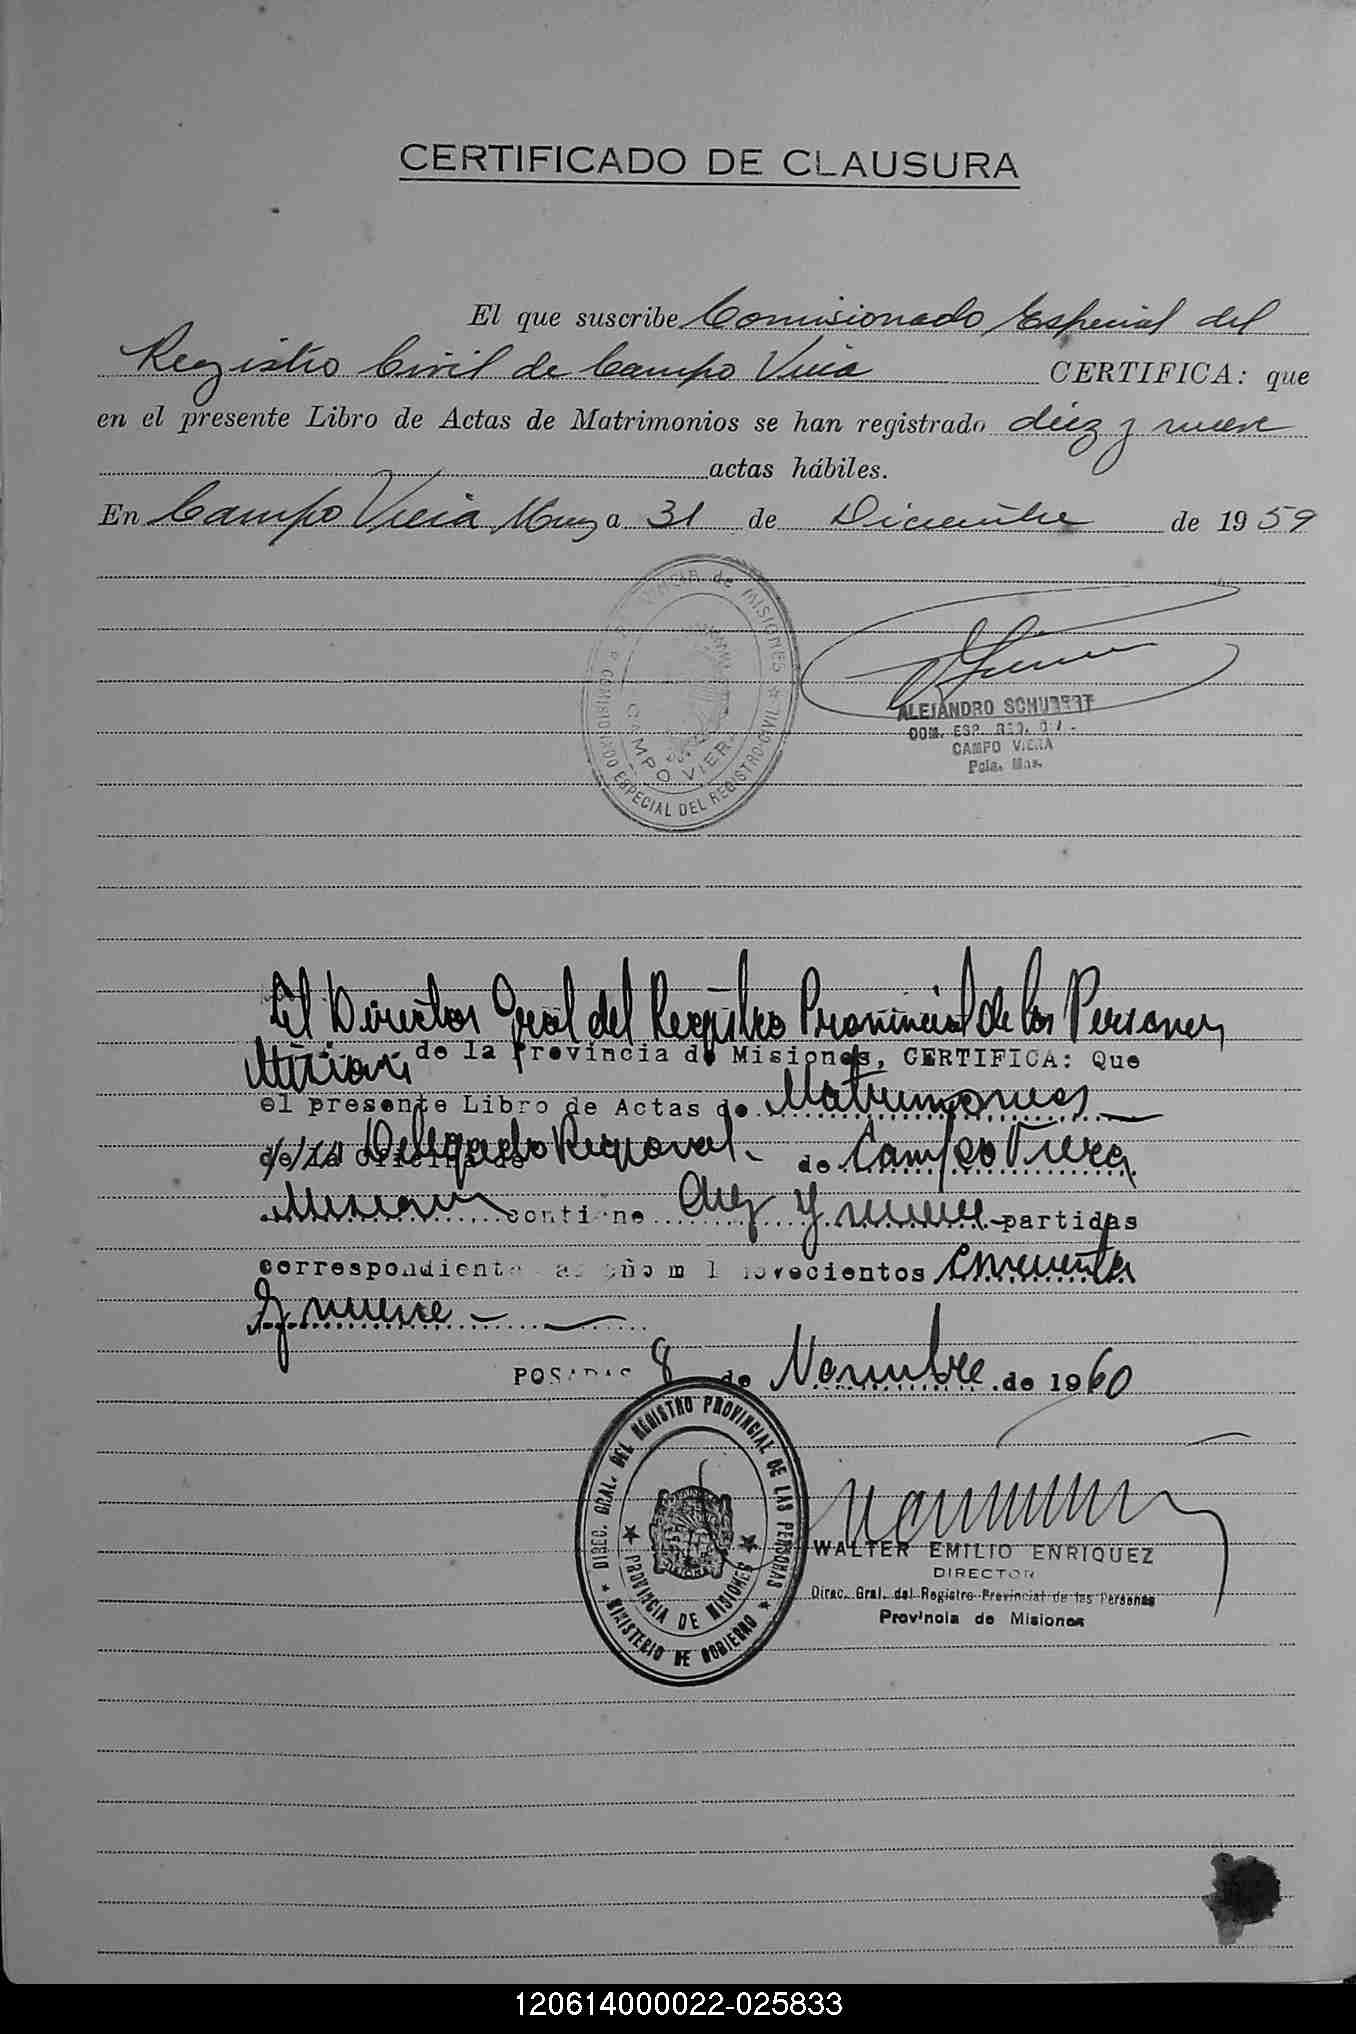 CERTIFICADO DE CLAUSURA
El que suscribe Comisionado Especial del
Registro Civil de Campo Viera CERTIFICA: que
en el presente Libro de Actas de Matrimonios se han registrado diez y nueve
actas hábiles.
En Campo Viera Mnes a 31 de Diciembre de 1959
PROVINCIA de MISIONES
COMISIONADO ESPECIAL DEL REGISTRO CIVIL
CAMPO VIERA
ALEJANDRO SCHUBERT
COM. ESP. REG.
CAMPO VIERA
Pcia. Mns.
El Director Gral del Registro Provincial de las Personas
de la Provincia de Misiones, CERTIFICA: Que
el presente Libro de Actas de Matrimonios
Delegado Regional de Campo Viera
Misiones contiene diez y nueve partidas
correspondiente al año mil novecientos cincuenta
y nueve
POSADAS 8 de Noviembre de 1960
DIREC. GRAL. DEL REGISTRO PROVINCIAL DE LAS PERSONAS
PROVINCIA DE MISIONES
MINISTERIO DE GOBIERNO
WALTER EMILIO ENRIQUEZ
DIRECTOR
Direc. Gral. del Registro Provincial de las Personas
Provincia de Misiones
120614000022-025833